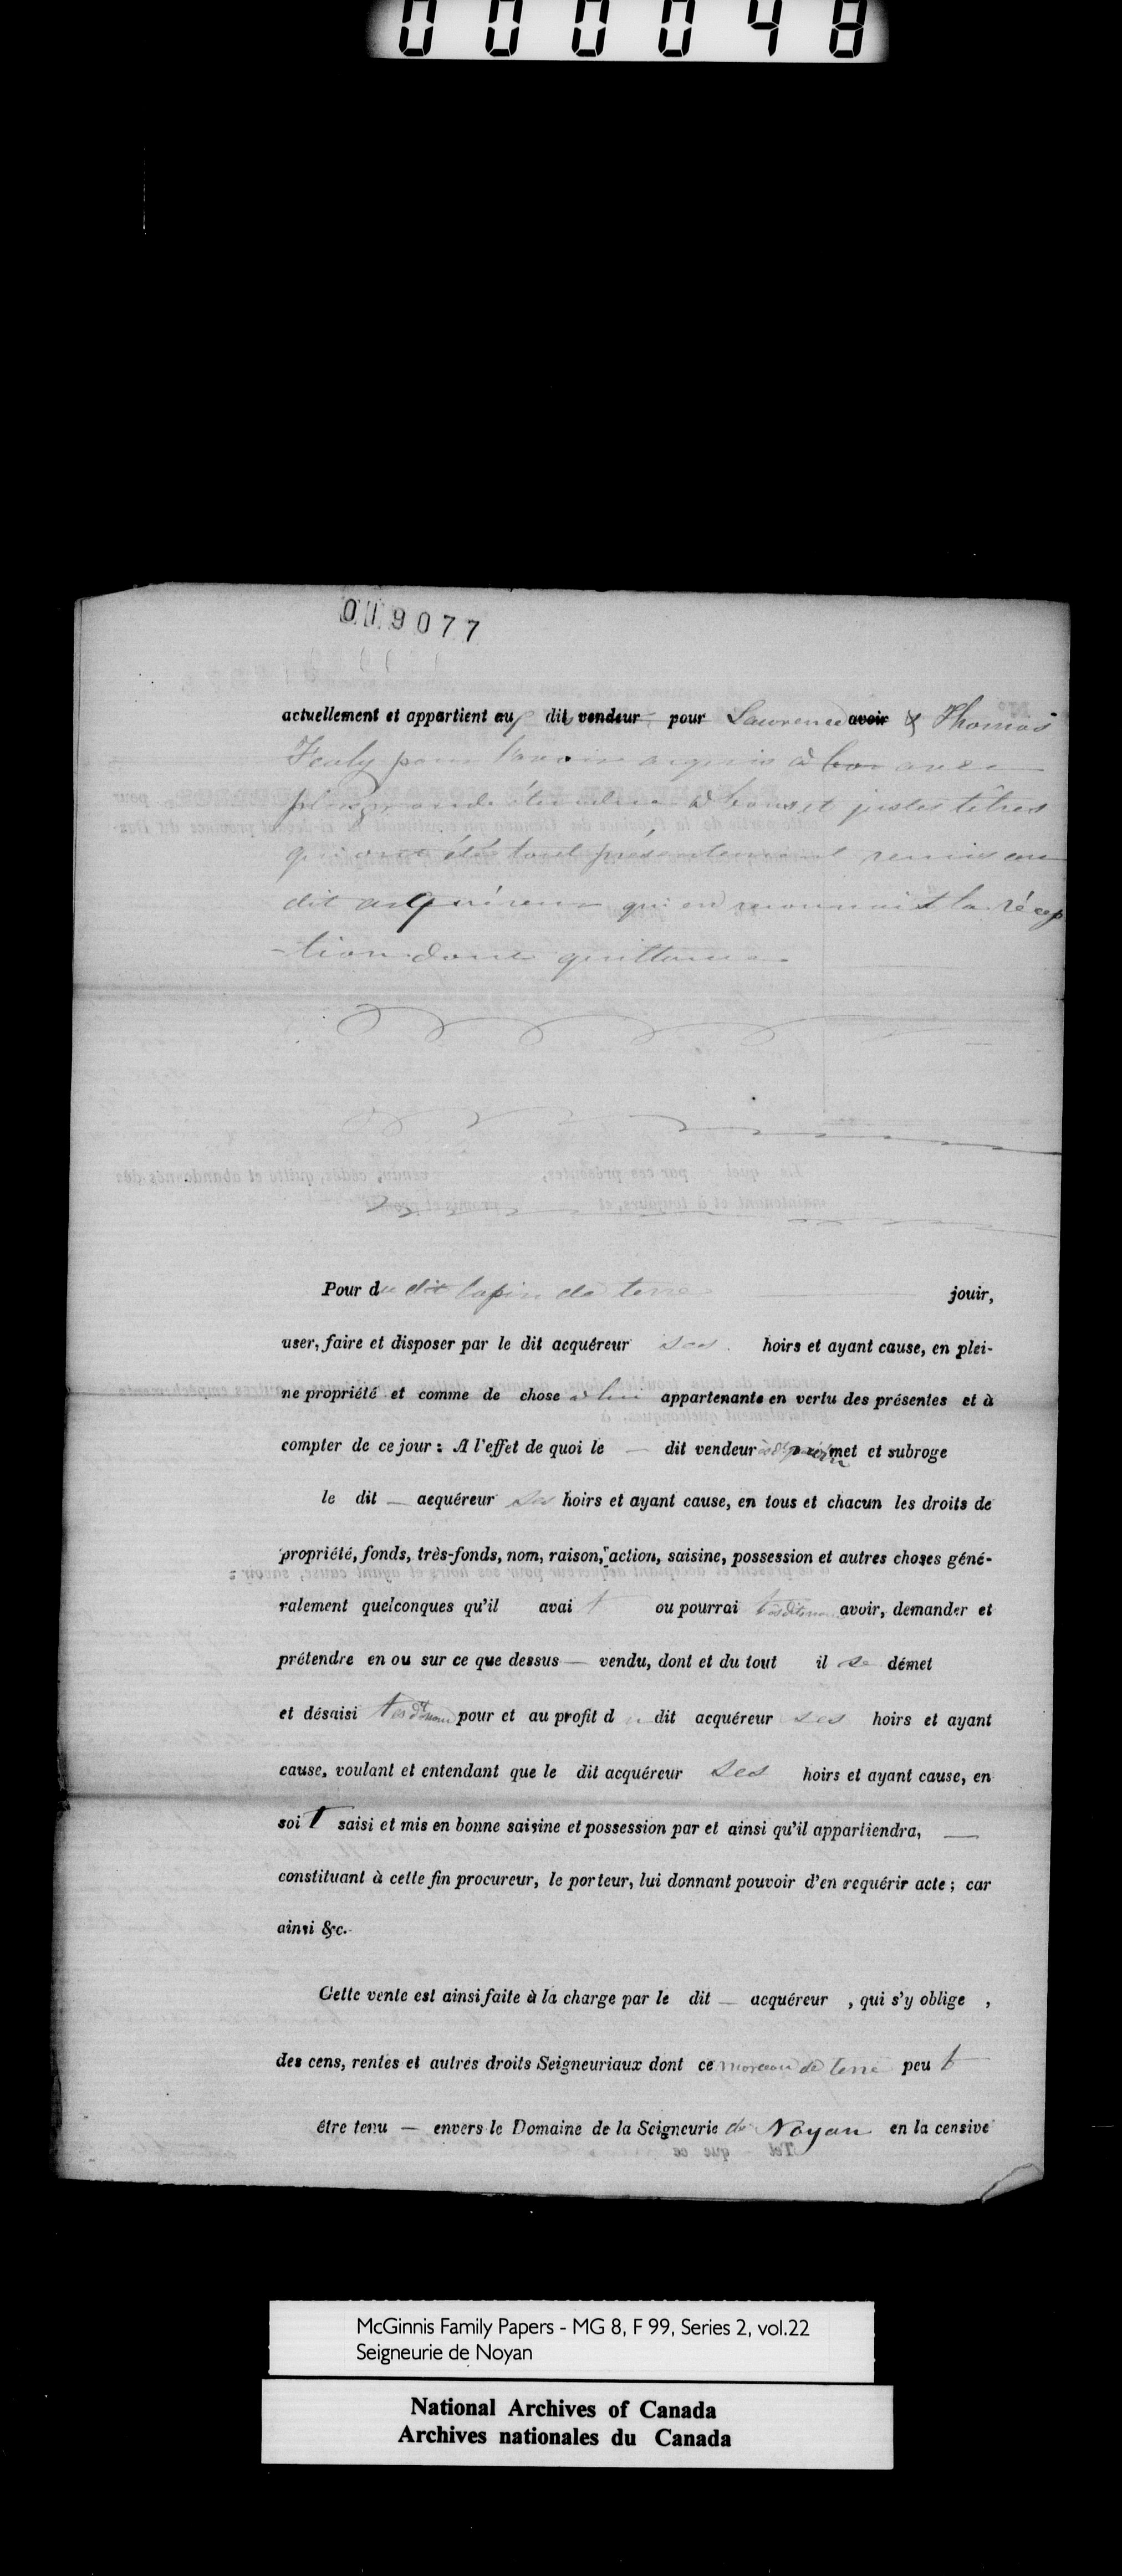 000048
019077
actuellement et appartient aux dits vendeur pour Lawrence avoir & Thomas
Fealy pour l'avoir acquis à bon avec
plus grande étendue à bons et justes titres
qui ont été tout présentement remis au
dit acquéreur qui en reconnait la récep
-tion dont quittance
Pour du dit lapin de terre jouir,
user, faire et disposer par le dit acquéreur ses hoirs et ayant cause, en plei-
ne propriété et comme de chose à lui appartenante en vertu des présentes et à
compter de ce jour : A l'effet de quoi le — dit vendeur met et subroge
le dit — acquéreur ses hoirs et ayant cause, en tous et chacun les droits de
propriété, fonds, très-fonds, nom, raison, action, saisine, possession et autres choses géné-
ralement quelconques qu'il avait ou pourrait avoir, demander et
prétendre en ou sur ce que dessus — vendu, dont et du tout il se démet
et désaisit pour et au profit du dit acquéreur ses hoirs et ayant
cause, voulant et entendant que le dit acquéreur ses hoirs et ayant cause, en
soit saisi et mis en bonne saisine et possession par et ainsi qu'il appartiendra, —
constituant à cette fin procureur, le porteur, lui donnant pouvoir d'en requérir acte ; car
ainsi &c.
Cette vente est ainsi faite à la charge par le dit — acquéreur , qui s'y oblige ,
des cens, rentes et autres droits Seigneuriaux dont ce morceau de terre peut
être tenu — envers le Domaine de la Seigneurie de Noyan en la censive
McGinnis Family Papers - MG 8, F 99, Series 2, vol.22
Seigneurie de Noyan
National Archives of Canada
Archives nationales du Canada